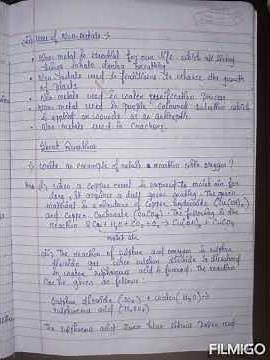 Uses of Non-Metals :-
• Non-metal is essential for our life which all living
beings inhale during breathing
• Non-Metals used in fertilizers to enhance the growth
of plants
• Non-metals used in water purification process
• Non-metal used in purple coloured solution which
is applied on wounds as an antiseptic
• Non-metals used in crackers
Short Question
Write an example of metals reaction with oxygen?
Ans (i) When a copper vessel is exposed to moist air for
long, it acquires a dull green coating. The green
material is a mixture of Copper hydroxide Cu(OH)2
and Copper Carbonate (CuCO3). The following is the
reaction 2Cu + H2O + CO2 + O2 → Cu(OH)2 + CuCO3
moist air
(ii) The reaction of sulphur and oxygen is sulphur
dioxide gas when sulphur dioxide is dissolved
in water, sulphurous acid is formed. The reaction
can be given as follows
Sulphur dioxide (SO2) + water (H2O) →
Sulphurous acid (H2SO3)
The sulphurous acid turns blue litmus paper red
FILMIGO